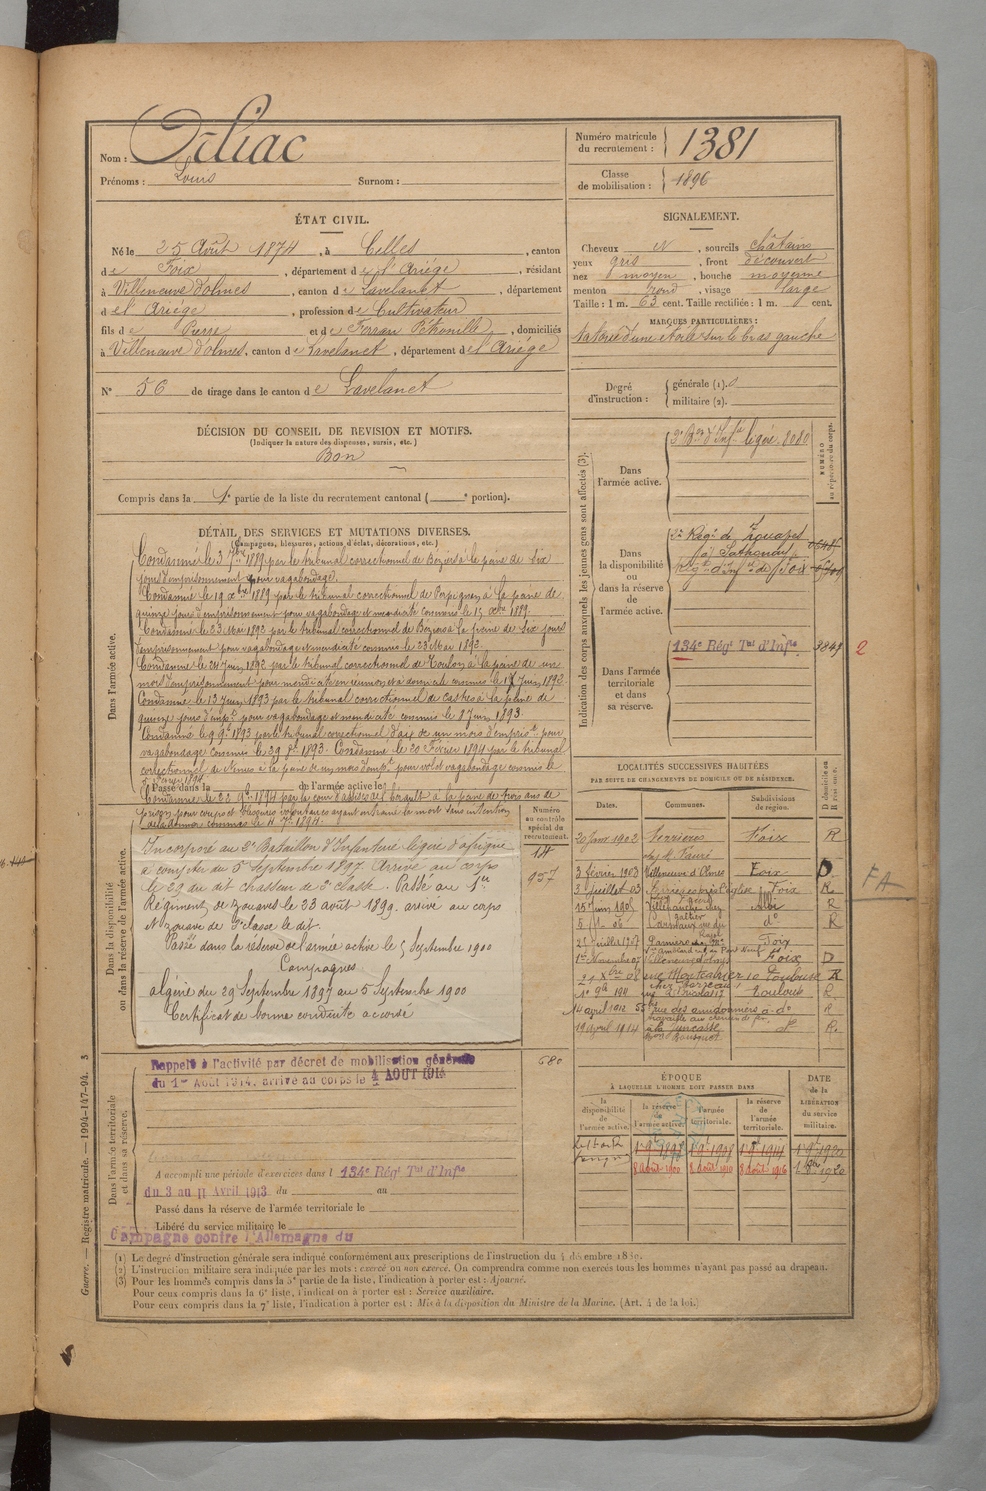 Nom :
Prénoms : Louis Surnom :
Numéro matricule du recrutement : 1381
Classe de mobilisation : 1896
ÉTAT CIVIL.
Né le 25 Août 1874, à Celles, canton
de Foix, département de l'Ariége, résidant
à Villeneuve d'olmes, canton de Lavelanet, département
de l'Ariège, profession de Cultivateur
fils de Pierre et de Ferran Pétronille, domiciliés
à Villeneuve d'olmes, canton de Lavelanet, département de l'Ariége
N° 56 de tirage dans le canton de Lavelanet
DÉCISION DU CONSEIL DE REVISION ET MOTIFS.
(Indiquer la nature des dispenses, sursis, etc.)
Bon
Compris dans la 1e partie de la liste du recrutement cantonal ( e portion).
SIGNALEMENT.
Cheveux N, sourcils châtains
yeux gris, front découvert
nez moyen, bouche moyenne
menton rond, visage large
Taille : 1 m. 63 cent. Taille rectifiée : 1 m. cent.
MARQUES PARTICULIÈRES :
tatoué d'une étoile sur le bras gauche
Degré d'instruction : générale (1). 0
militaire (2).
DÉTAIL DES SERVICES ET MUTATIONS DIVERSES.
(Campagnes, blessures, actions d'éclat, décorations, etc.)
Dans l'armée active.
Condamné le 3 7bre 1889 par le tribunal correctionnel de Béziers à la peine de six
jours d'emprisonnement pour vagabondage.
Condamné le 19 Xbre 1889 par le tribunal correctionnel de Perpignan à la peine de
quinze jours d'emprisonnement pour vagabondage et mendicité commis le 15 Xbre 1889.
Condamné le 23 Mai 1892 par le tribunal correctionnel de Béziers à la peine de six jours
d'emprisonnement pour vagabondage et mendicité commis le 23 Mai 1892.
Condamné le 24 Juin 1892 par le tribunal correctionnel de Toulon à la peine de un
mois d'emprisonnement pour mendicité en réunion et à domicile commis le Juin 1892.
Condamné le 13 Juin 1893 par le tribunal correctionnel de Castres à la peine de
quinze jours d'empt pour vagabondage et mendicité commis le 8 Juin 1893.
Condamné le 9 9bre 1893 par le tribunal correctionnel d'aix de un mois d'emprist pour
vagabondage commis le 29 8bre 1893. Condamné le 20 Février 1894 par le tribunal
correctionnel de Nimes à la peine de un mois d'empt pour vol et vagabondage commis le
Février 1894.
Passé dans la de l'armée active le
Condamné le 23 9bre 1894 par la cour d'assises de l'Hérault à la peine de trois ans de
prison pour coups et blessures volontaires ayant entrainé la mort sans intention
de la donner commis le 7bre 1894.
Numéro au contrôle spécial du recrutement.
14
957
Dans la disponibilité ou dans la réserve de l'armée active.
Incorporé au 2e Bataillon d'Infanterie légère d'afrique
à compter du 5 Septembre 1897. Arrivé au corps
le 29 du dit chasseur de 2e classe. Passé au 1er
Régiment de zouaves le 23 août 1899. arrivé au corps
et zouave de 2e classe le dit.
Passé dans la réserve de l'armée active le 5 Septembre 1900
Campagnes
algérie du 29 Septembre 1897 au 5 Septembre 1900
Certificat de bonne conduite accordé
Dans l'armée territoriale et dans sa réserve.
Rappelé à l'activité par décret de mobilisation générale
du 1er Août 1914. arrivé au corps le 4 AOUT 1914
680
A accompli une période d'exercices dans l 134e Rég Tal d'Infie
du 3 au 11 Avril 1913 du au
Passé dans la réserve de l'armée territoriale le
Libéré du service militaire le
Campagne contre l'Allemagne du
Indication des corps auxquels les jeunes gens sont affectés (3).
NUMÉRO au répertoire du corps.
Dans l'armée active.
2e Bon d'Infie légère. 8080
Dans la disponibilité ou dans la réserve de l'armée active.
Régt de Zouaves
(à) Sathonay
Régt d'Infie de Foix
Dans l'armée territoriale et dans sa réserve.
134e Rég Tal d'Infie. 3847 2
LOCALITÉS SUCCESSIVES HABITÉES
PAR SUITE DE CHANGEMENTS DE DOMICILE OU DE RÉSIDENCE.
Dates. Communes. Subdivisions de région. D domicile ou R résidence.
20 Janv 1902 Vernières Foix R
chez M. Fauré
3 février 1903 Villeneuve d'Olmes Foix D
3 juillet 03 Foix R
15 Juin 1905 Villefranche Albi R
5 11 06 Carmaux do R
21 Juillet 1907 Pamiers Foix
1er Novembre 07 Villeneuve d'olmes Foix D
Toulouse R
1er 9bre 1911 Toulouse R
14 avril 1912 55 rue des amidonniers à do R
travaille aux chemin de fer
19 Avril 1914 do R.
FA
ÉPOQUE
À LAQUELLE L'HOMME DOIT PASSER DANS
la disponibilité de l'armée active. la réserve de l'armée active. l'armée territoriale. la réserve de l'armée territoriale.
DATE de la LIBÉRATION du service militaire.
8 août 1900 8 août 1910 8 août 1916
(1) Le degré d'instruction générale sera indiqué conformément aux prescriptions de l'instruction du 4 décembre 1889.
(2) L'instruction militaire sera indiquée par les mots : exercé ou non exercé. On comprendra comme non exercés tous les hommes n'ayant pas passé au drapeau.
(3) Pour les hommes compris dans la 5e partie de la liste, l'indication à porter est : Ajourné.
Pour ceux compris dans la 6e liste, l'indication à porter est : Service auxiliaire.
Pour ceux compris dans la 7e liste, l'indication à porter est : Mis à la disposition du Ministre de la Marine. (Art. 4 de la loi.)
Guerre. — Registre matricule. — 1994-147-94. 3